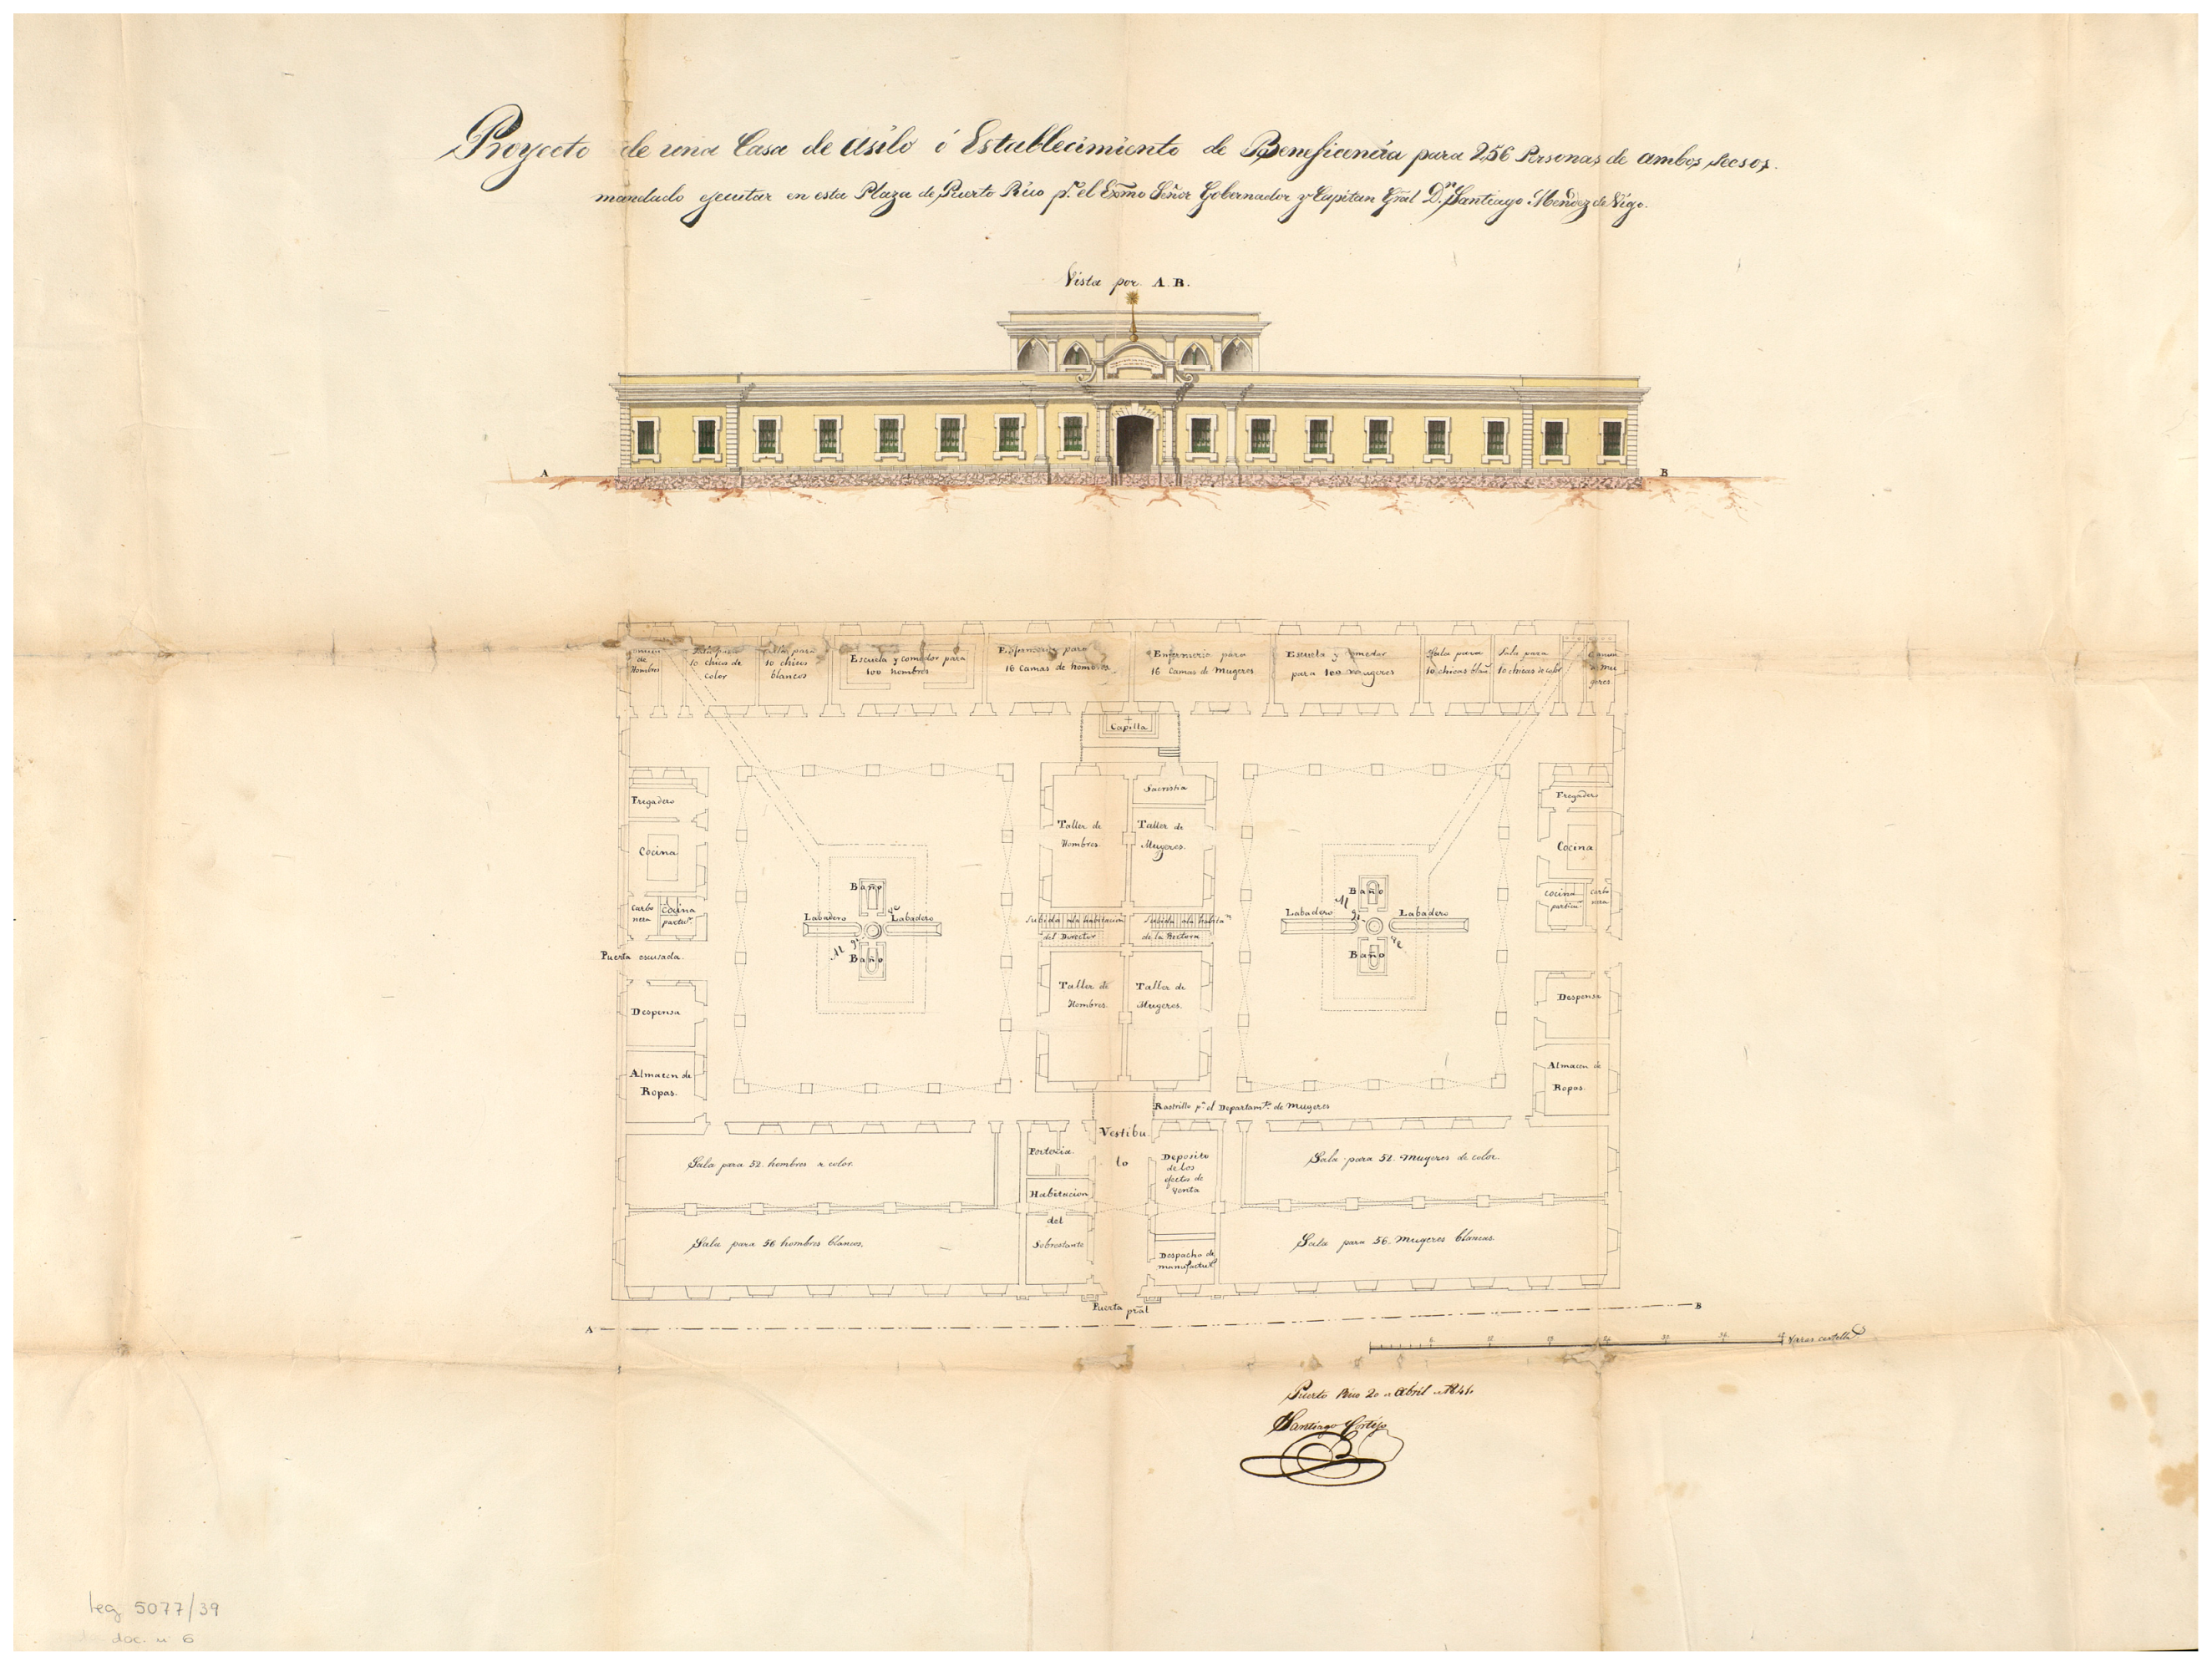 Proyecto de una Casa de asilo ó Establecimiento de Beneficencia para 256 Personas de ambos secsos,
mandado ejecutar en esta Plaza de Puerto Rico pr. el Exmo Señor Gobernador y Capitan Gral Dn. Santiago Mendez de Vigo.
Vista por A.B.
A
B
de
Hombres
10 chicos de
color
Sala para
10 chicos
blancos
Escuela y comedor para
100 hombres
Enfermeria para
16 Camas de hombres
Enfermeria para
16 Camas de Mugeres
Escuela y comedor
para 100 mugeres
Sala para
10 chicas blan
Sala para
10 chicas de color
Mu
geres
Capilla
Fregadero
Cocina
Carbo
nera
Cocina
particr.
Puerta escusada.
Despensa
Almacen de
Ropas.
Baño
Labadero
Labadero
Baño
Sacristia
Taller de
Hombres.
Taller de
Mugeres.
Subida a la habitacion
del Director
Subida a la habitan.
de la Rectora
Taller de
Hombres.
Taller de
Mugeres.
Baño
Labadero
Labadero
Baño
Fregadero
Cocina
Cocina
particu.
Carbo
nera
Despensa
Almacen de
Ropas.
Rastrillo pa. el Departamto. de Mugeres
Vestibu
lo
Portería
Habitacion
del
Sobrestante
Deposito
de los
efectos de
Venta
Despacho de
manufactur
Sala para 52. hombres de color.
Sala para 56 hombres blancos.
Sala para 52. Mugeres de color.
Sala para 56. Mugeres blancas.
Puerta pral
A
B
6 12 18 24 30 36 Varas castella
Puerto Rico 20 de Abril de 1841.
Santiago Cortijo
leg 5077/39
doc. n 6